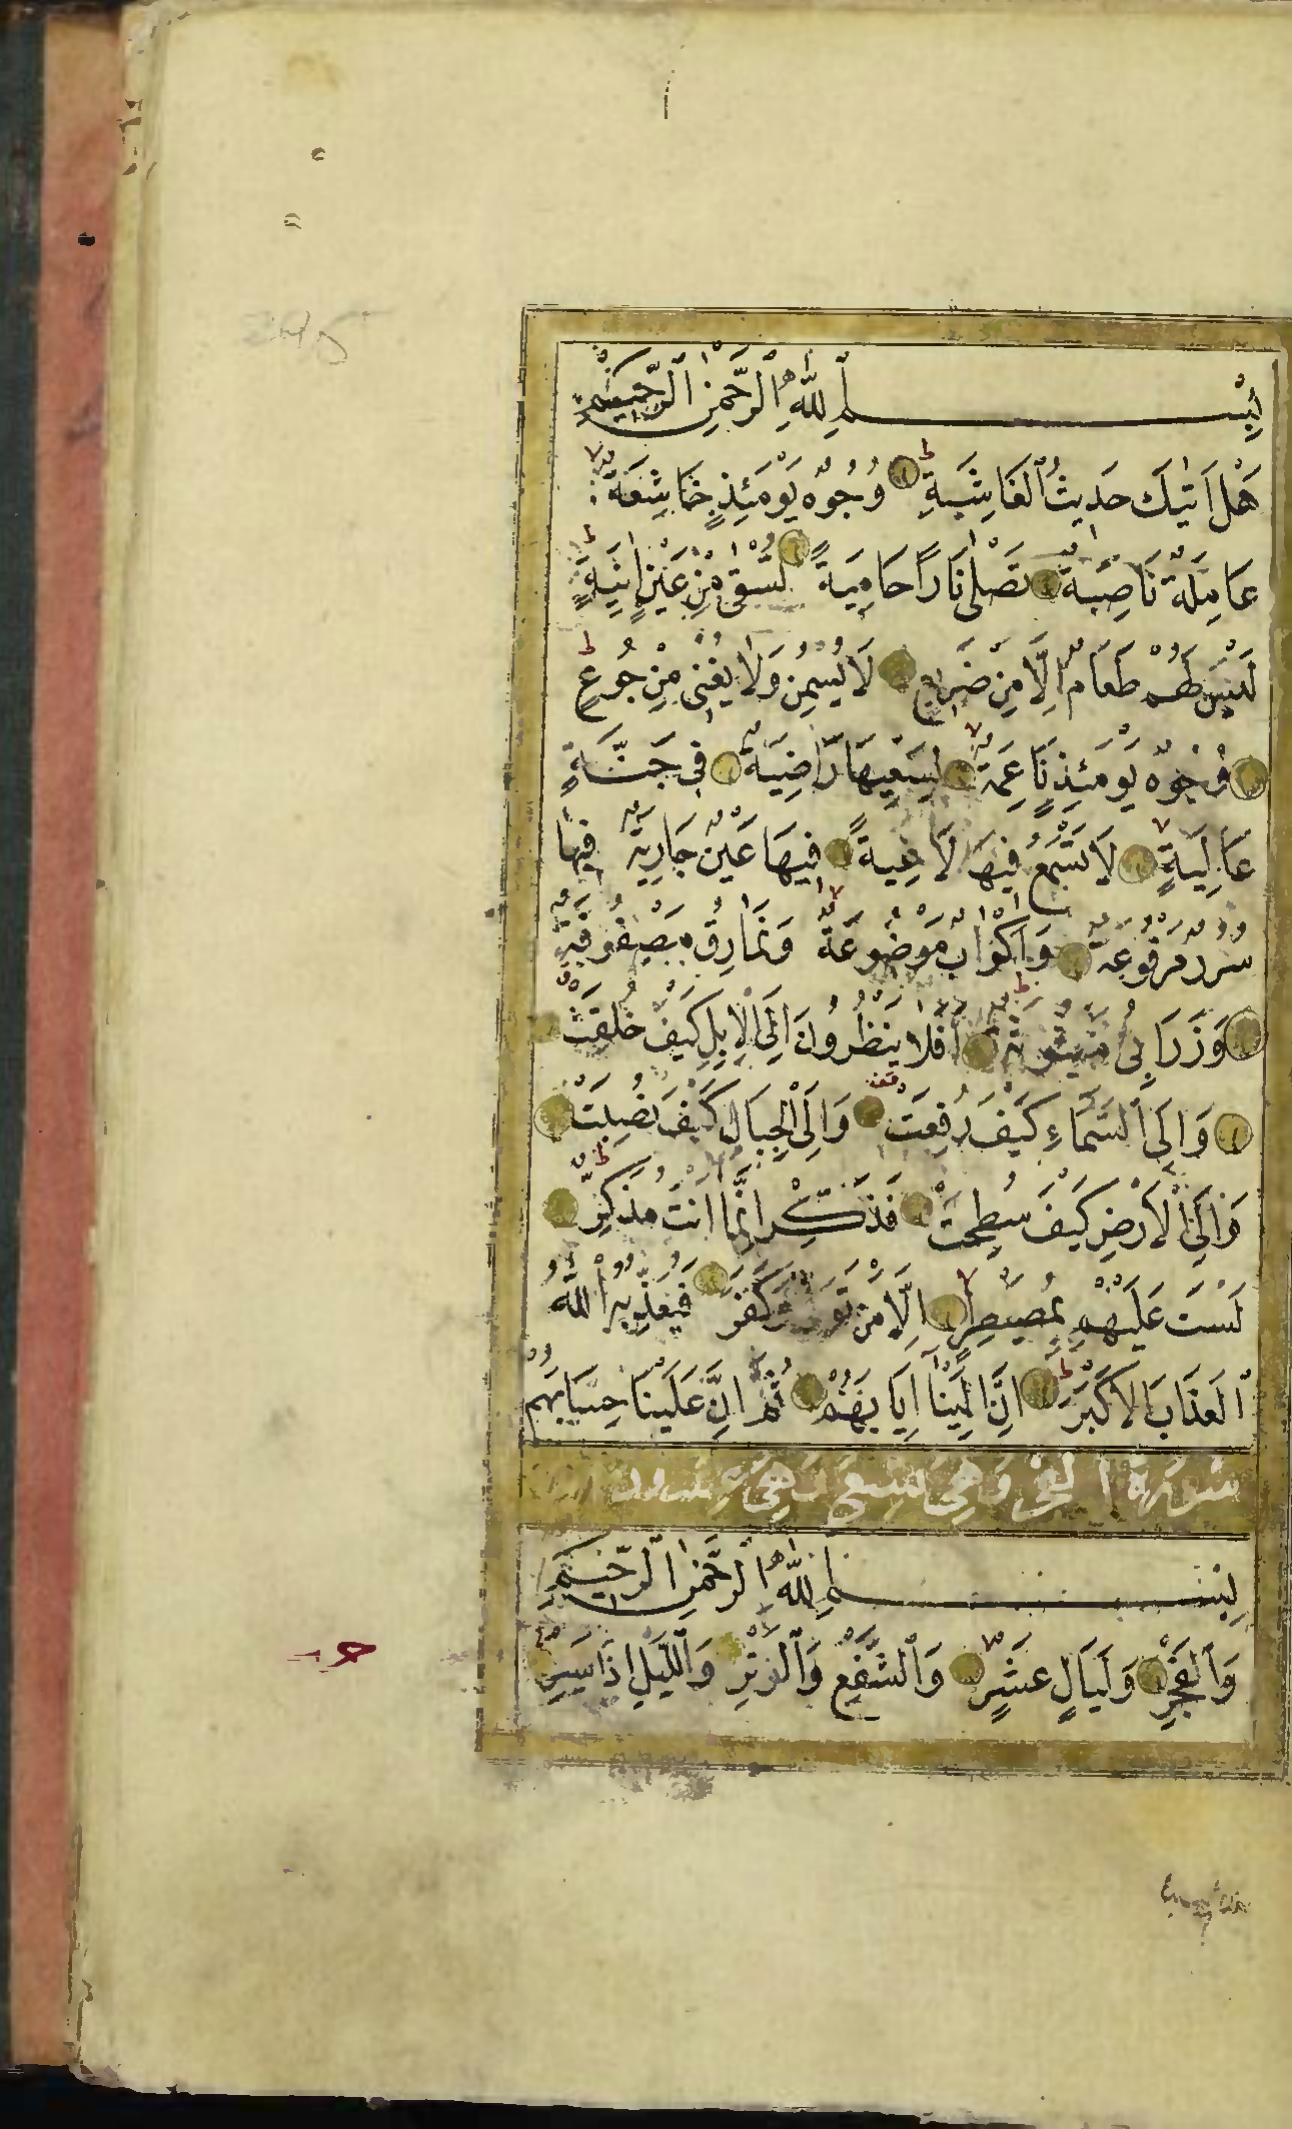 بِسْمِ اللهِ الرَّحْمٰنِ الرَّحِيمِ
هَلْ اَتٰيكَ حَدِيثُ ٱلْغَاشِيَةِ وُجُوهٌ يَوْمَئِذٍ خَاشِعَةٌ
عَامِلَةٌ نَاصِبَةٌ تَصْلٰى نَارًا حَامِيَةً تُسْقٰى مِنْ عَيْنٍ اٰنِيَةٍ
لَيْسَ لَهُمْ طَعَامٌ اِلَّا مِنْ ضَرِيعٍ لَا يُسْمِنُ وَلَا يُغْنِى مِنْ جُوعٍ
وُجُوهٌ يَوْمَئِذٍ نَاعِمَةٌ لِسَعْيِهَا رَاضِيَةٌ فِى جَنَّةٍ
عَالِيَةٍ لَا تَسْمَعُ فِيهَا لَاغِيَةً فِيهَا عَيْنٌ جَارِيَةٌ فِيهَا
سُرُرٌ مَرْفُوعَةٌ وَاَكْوَابٌ مَوْضُوعَةٌ وَنَمَارِقُ مَصْفُوفَةٌ
وَزَرَابِىُّ مَبْثُوثَةٌ اَفَلَا يَنْظُرُونَ اِلَى الْاِبِلِ كَيْفَ خُلِقَتْ
وَاِلَى ٱلسَّمَاءِ كَيْفَ رُفِعَتْ وَاِلَى ٱلْجِبَالِ كَيْفَ نُصِبَتْ
وَاِلَى ٱلْاَرْضِ كَيْفَ سُطِحَتْ فَذَكِّرْ اِنَّمَا اَنْتَ مُذَكِّرٌ
لَسْتَ عَلَيْهِمْ بِمُصَيْطِرٍ اِلَّا مَنْ تَوَلّٰى وَكَفَرَ فَيُعَذِّبُهُ اللهُ
ٱلْعَذَابَ الْاَكْبَرَ اِنَّ اِلَيْنَا اِيَابَهُمْ ثُمَّ اِنَّ عَلَيْنَا حِسَابَهُمْ
سُورَةُ الْفَجْرِ وَهِىَ
بِسْمِ اللهِ الرَّحْمٰنِ الرَّحِيمِ
وَٱلْفَجْرِ وَلَيَالٍ عَشْرٍ وَٱلشَّفْعِ وَٱلْوَتْرِ وَٱللَّيْلِ اِذَا يَسْرِ